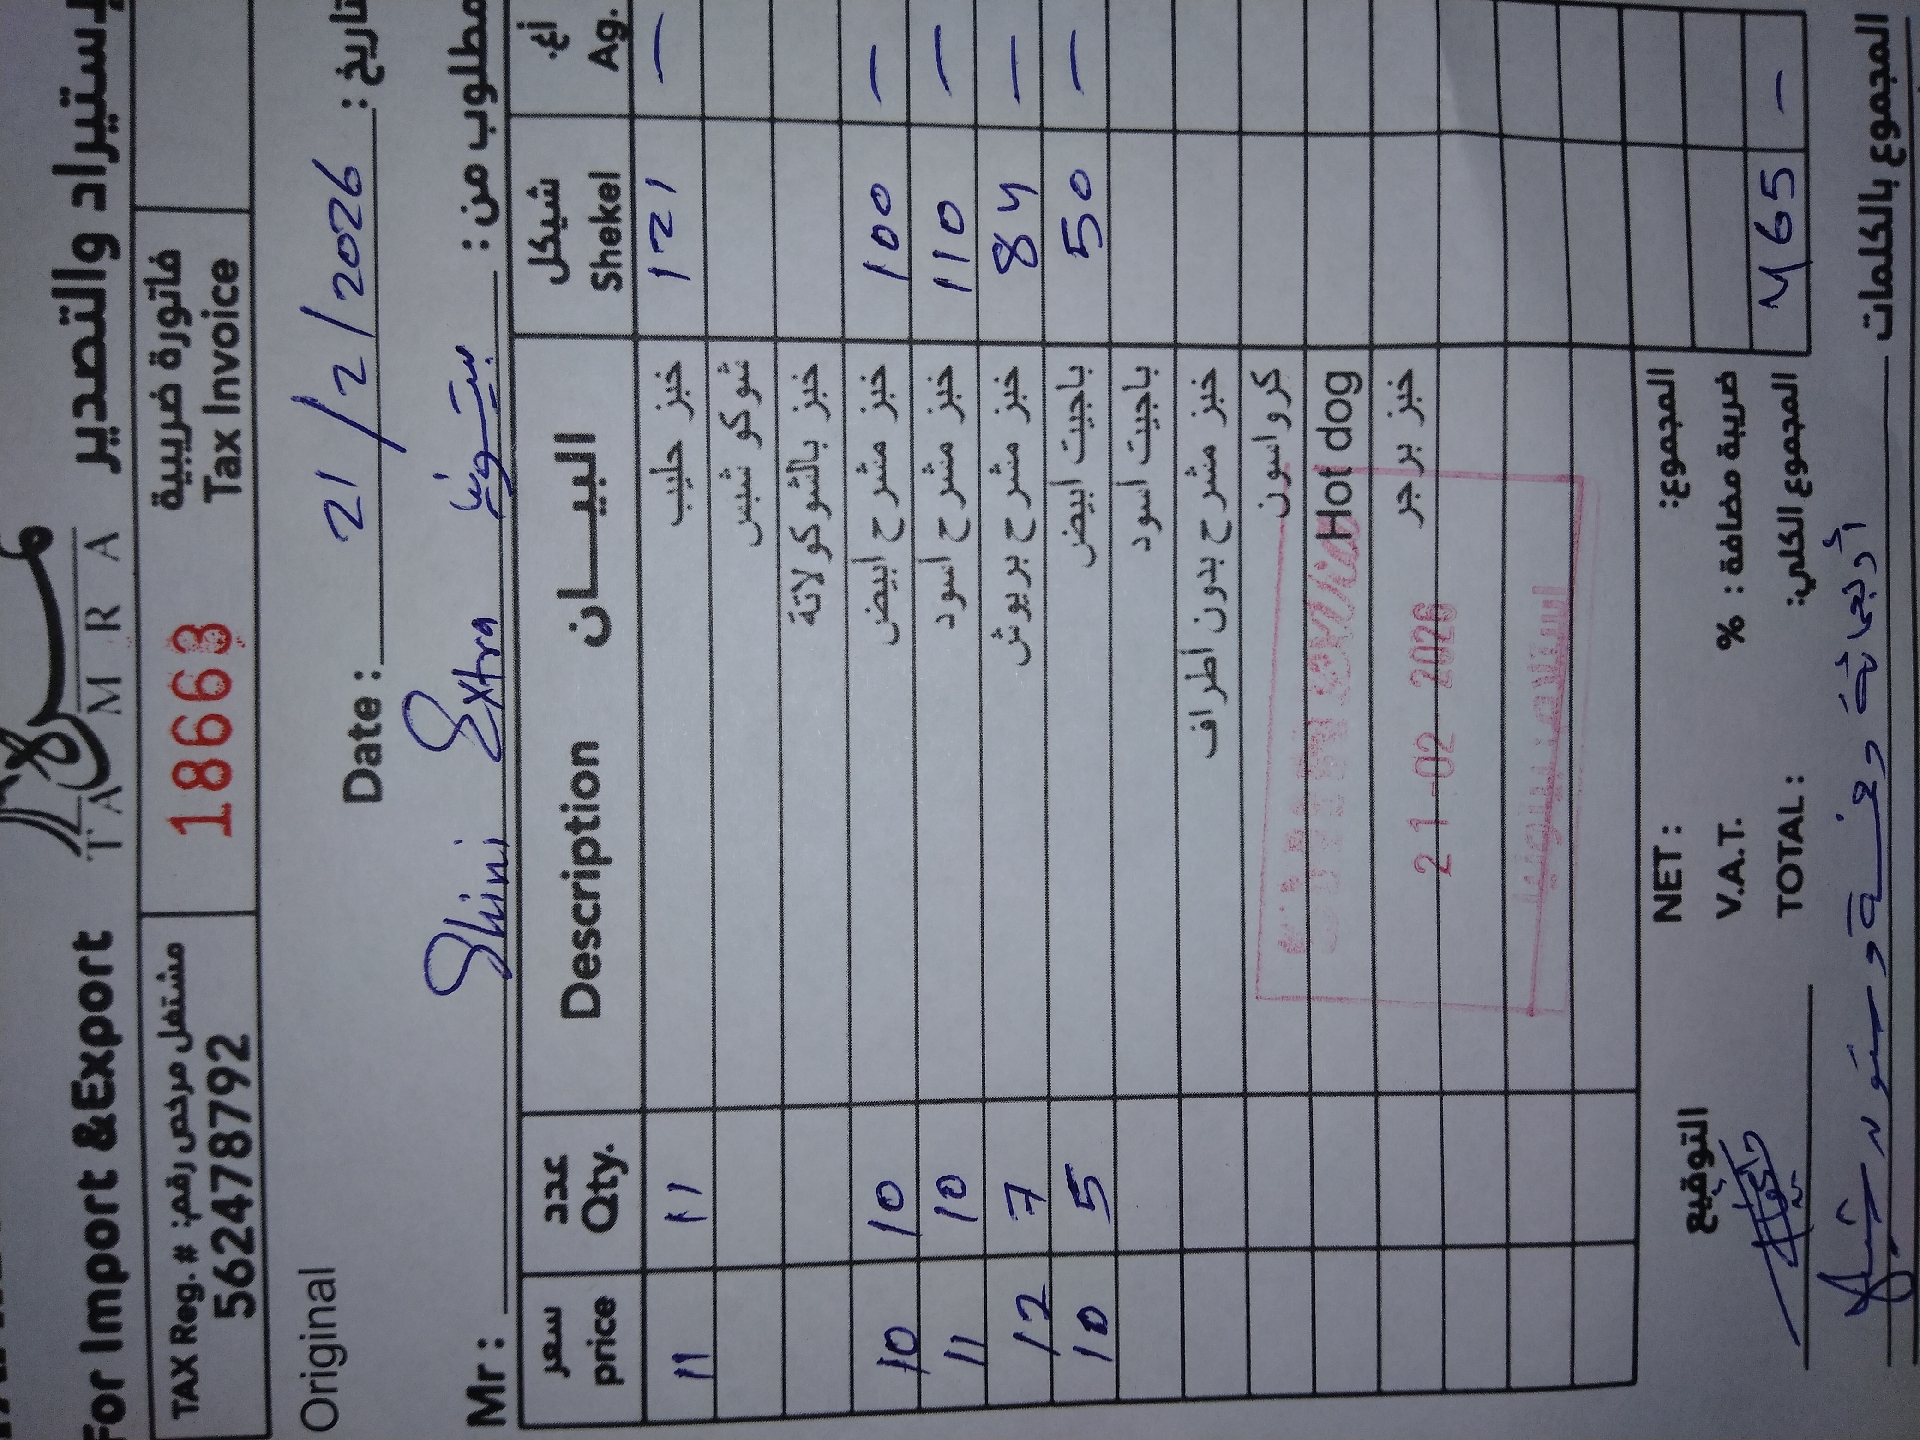 For Import &Export
إستيراد والتصدير
TAMRA
TAX Reg. #: مشتغل مرخص رقم:
562478792
18663
فاتورة ضريبية
Tax Invoice
Original
Date : 21/2/2026 تاريخ :
Mr : Shini Extra بيتونيا مطلوب من :
سعر price عدد Qty. Description البيـــان شيكل Shekel أغ. Ag.
11 11 خبز حليب 121 —
شوكو شبس
خبز بالشوكولاتة
10 10 خبز مشرح ابيض 100 —
11 10 خبز مشرح اسود 110 —
12 7 خبز مشرح بريوش 84 —
10 5 باجيت ابيض 50 —
باجيت اسود
خبز مشرح بدون اطراف
كرواسون
Hot dog
خبز برجر
21-02-2026
استلام بيتونيا
NET : المجموع:
V.A.T. % ضريبة مضافة :
TOTAL : المجموع الكلي: 465 —
التوقيع
المجموع بالكلمات أربعمائة وخمسة وستون شيكل